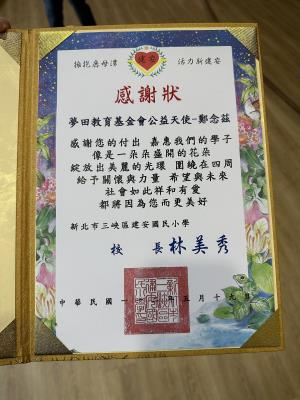 擁抱鹿母潭 建安 活力新建安
感謝狀
夢田教育基金會公益天使-鄭念茲
感謝您的付出 嘉惠我們的學子
像是一朵朵盛開的花朵
綻放出美麗的光環 圍繞在四周
給予關懷與力量 希望與未來
社會如此祥和有愛
都將因為您而更美好
新北市三峽區建安國民小學
校 長 林美秀
中華民國一 年五月十九日